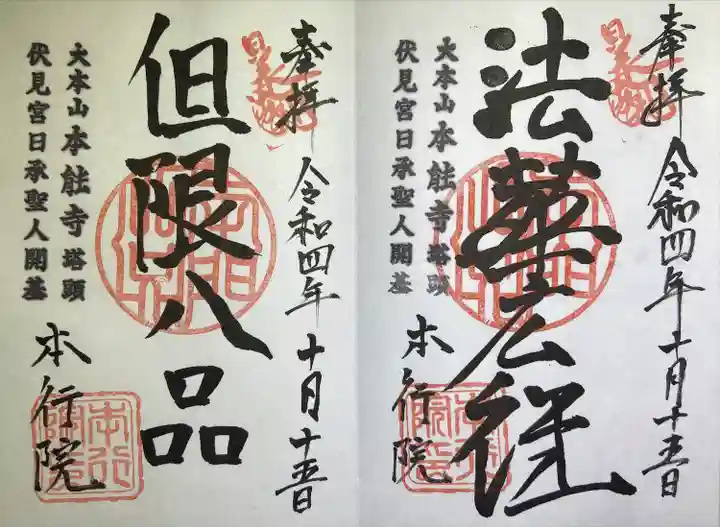 奉拝 令和四年十月十五日
法華
大本山 本能寺 塔頭
伏見宮日承聖人開基
本行院
奉拝 令和四年十月十五日
但限八品
大本山 本能寺 塔頭
伏見宮日承聖人開基
本行院